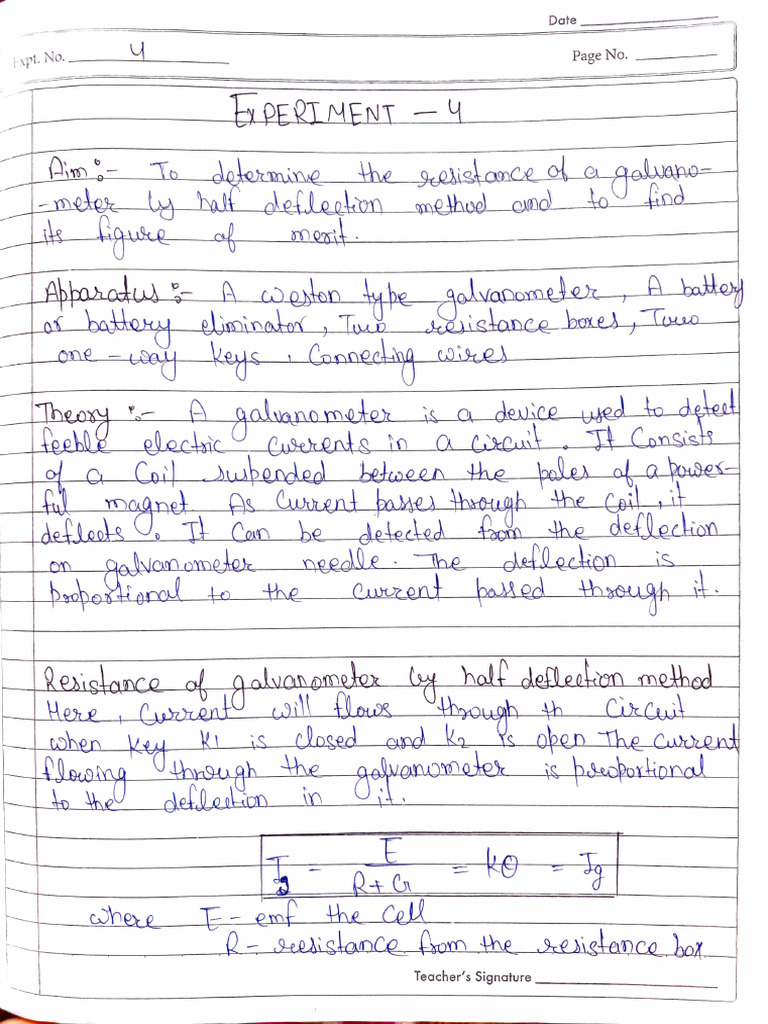 Date
Expt. No. 4
Page No.
EXPERIMENT - 4
Aim :- To determine the resistance of a galvano-
-meter by half deflection method and to find
its figure of merit.
Apparatus :- A weston type galvanometer, A battery
or battery eliminator, Two resistance boxes, Two
one-way keys, Connecting wires
Theory :- A galvanometer is a device used to detect
feeble electric currents in a circuit. It Consists
of a Coil suspended between the poles of a power-
ful magnet. As Current passes through the coil, it
deflects. It Can be detected from the deflection
on galvanometer needle. The deflection is
proportional to the current passed through it.
Resistance of galvanometer by half deflection method
Here, Current will flows through th Circuit
when key K1 is closed and K2 is open The Current
flowing through the galvanometer is proportional
to the deflection in it.
Ig = E / R+G = Kθ = Ig
where E - emf the Cell
R - resistance from the resistance box
Teacher's Signature